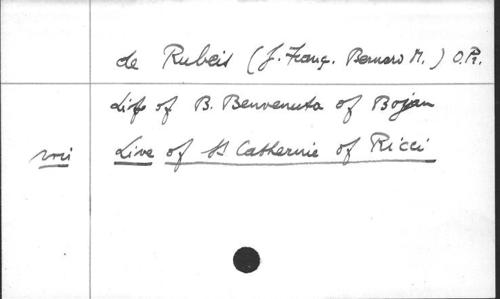 de Rubeis (J. Franç. Bernard M.) O.P.
Life of B. Benvenuta of Bojan
voir Live of St Catherine of Ricci